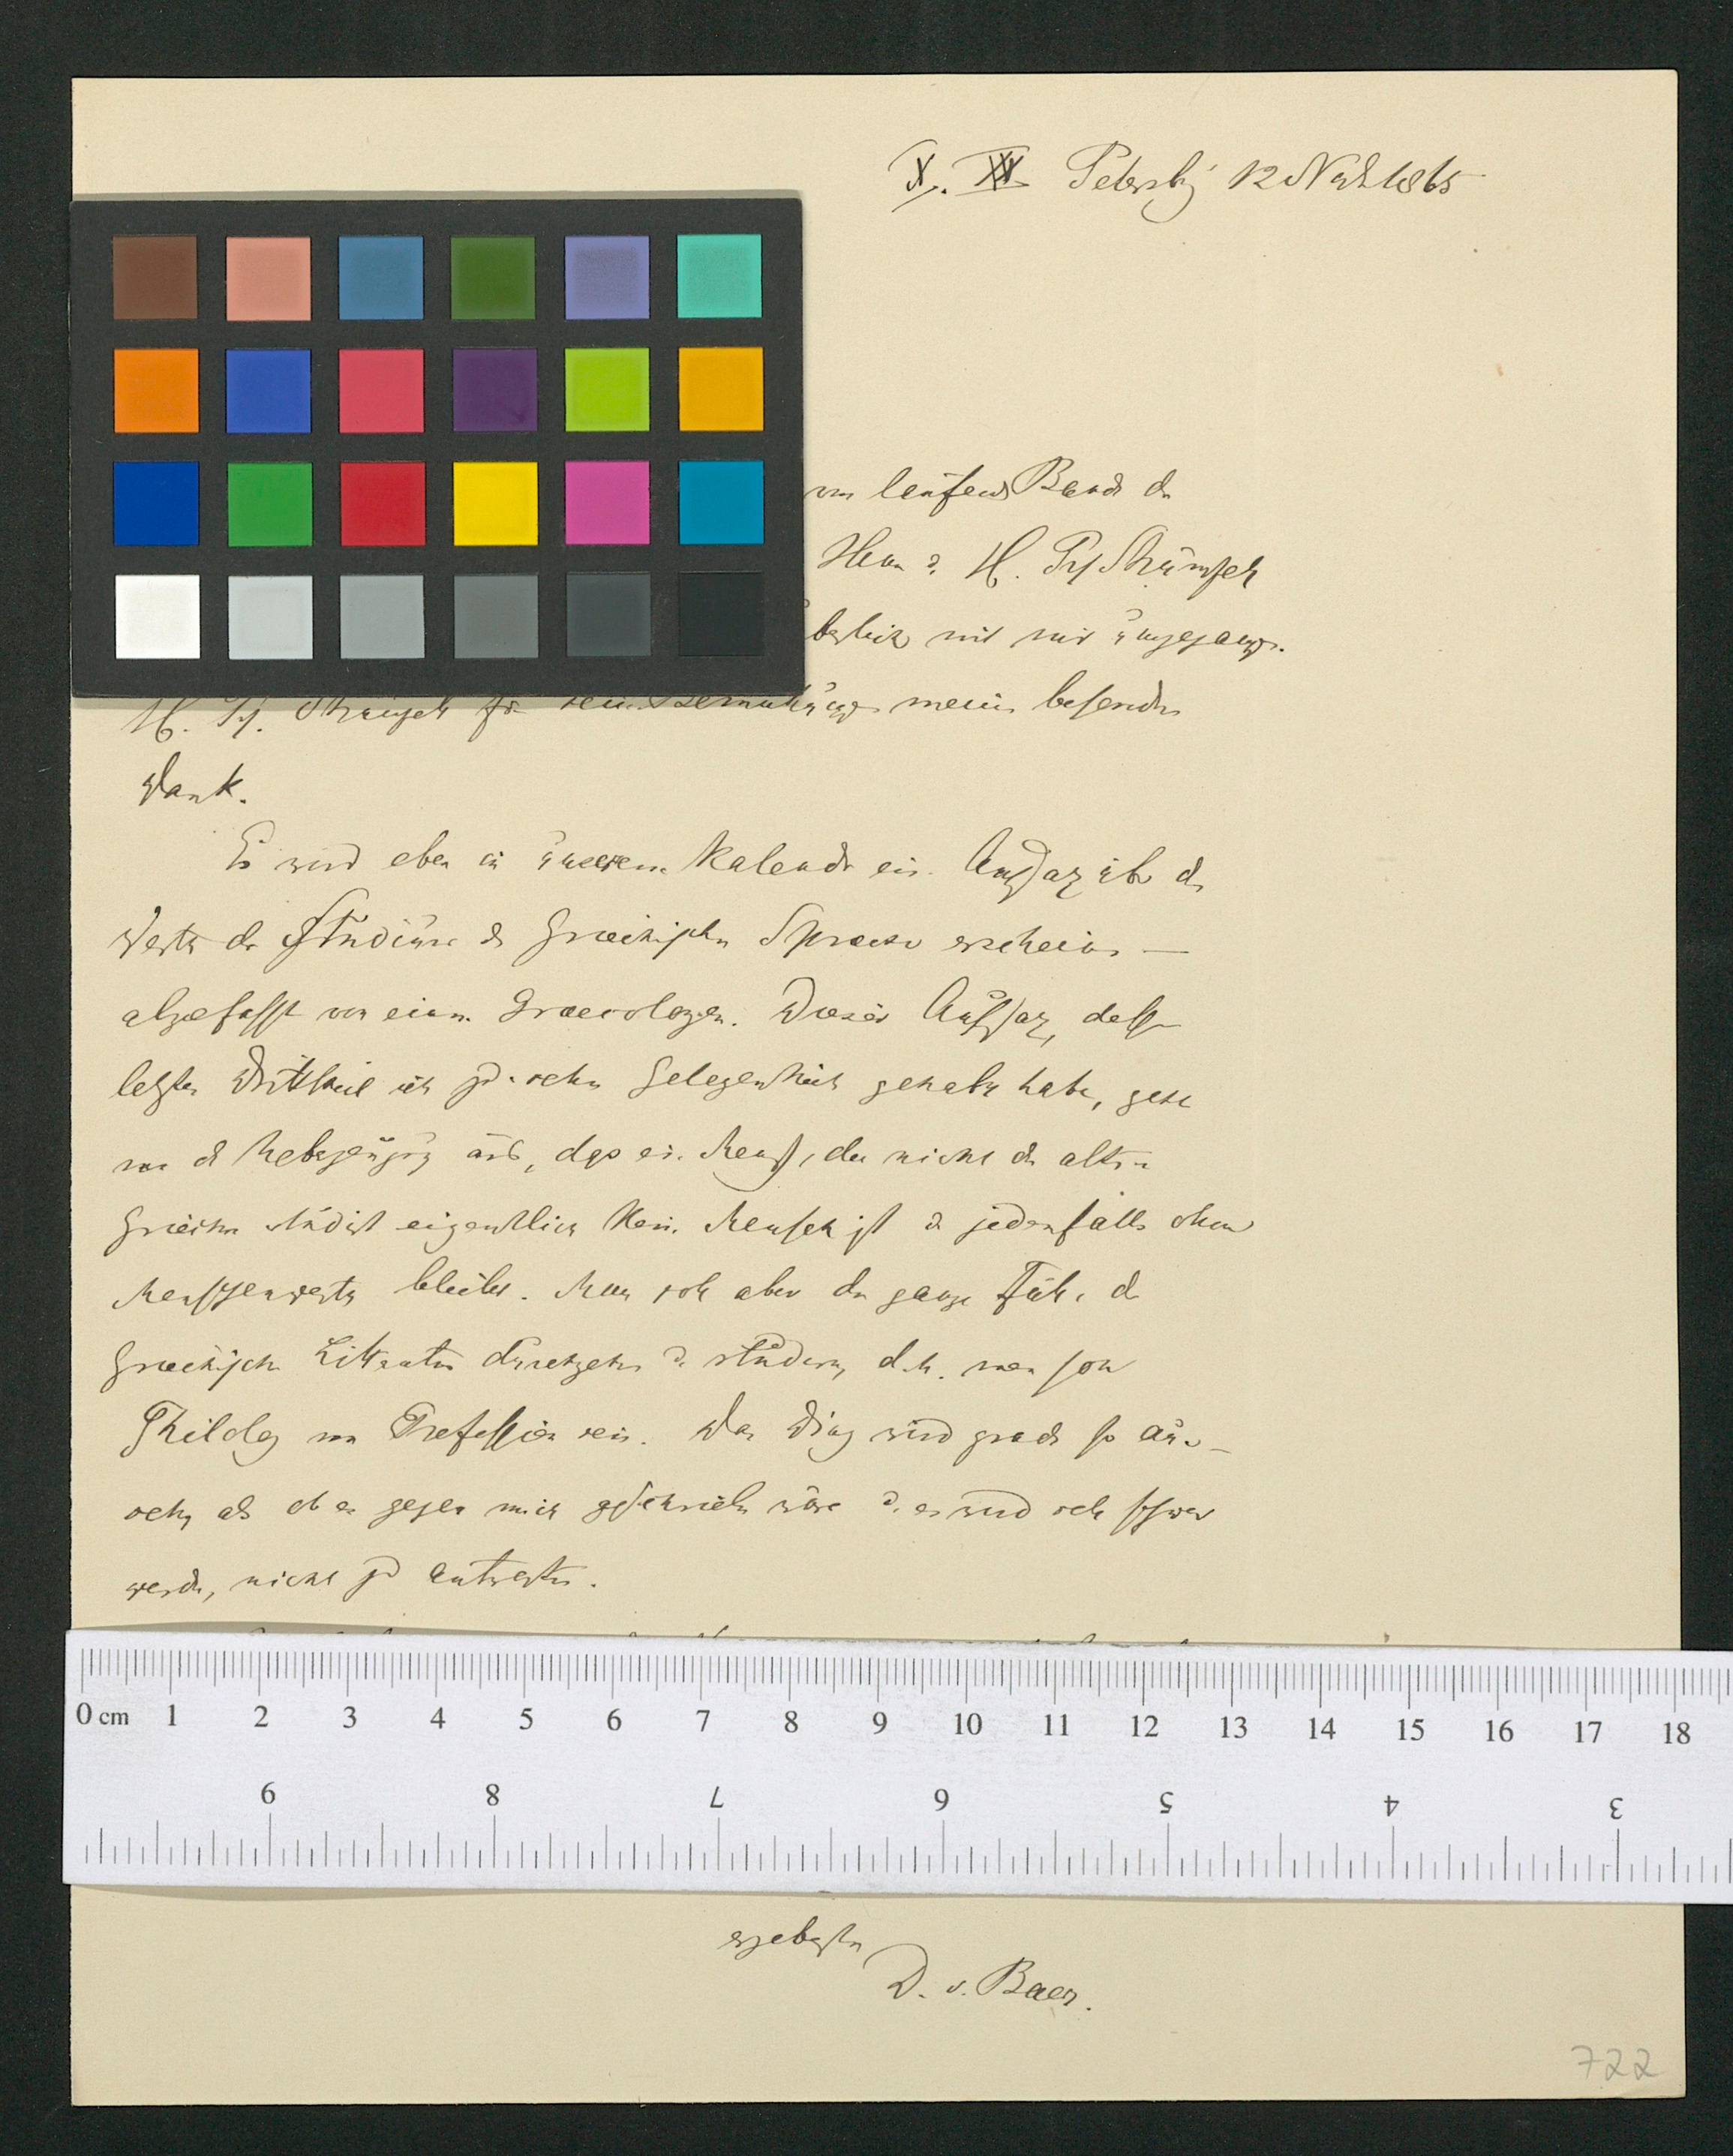 X. XX Petersbg 12 Novb 1865
von laufend Bande der
Herrn u. H. Prf Strümpell
mit mir umgegangen.
H. Prf. Strümpell für seine Bemühungen meinen besondern
Dank.
Es wird eben in unserem Kalender ein Aufsaz über den
Werth des Studiums der Griechischen Sprache erscheinen —
abgefasst von einem Graecologen. Dieser Aufsaz, dessen
letztes Drittheil ich zu sehen Gelegenheit gehabt habe, geht
von der Ueberzeugung aus, dass ein Mensch, der nicht die alten
Griechen studirt eigentlich kein Mensch ist u jedenfalls ohne
Menschenwerth bleibt. Man soll aber die ganze Fülle der
Griechischen Litteratur durchgehen u. studiren, d.h. man soll
Philolog von Profession sein. Das Ding wird grade so aus-
sehen, als ob es gegen mich geschrieben wäre u. es wird sehr schwer
werden, nicht zu antworten.
0 cm 1 2 3 4 5 6 7 8 9 10 11 12 13 14 15 16 17 18
9 8 7 6 5 4 3
ergebenster
D. v. Baer.
722